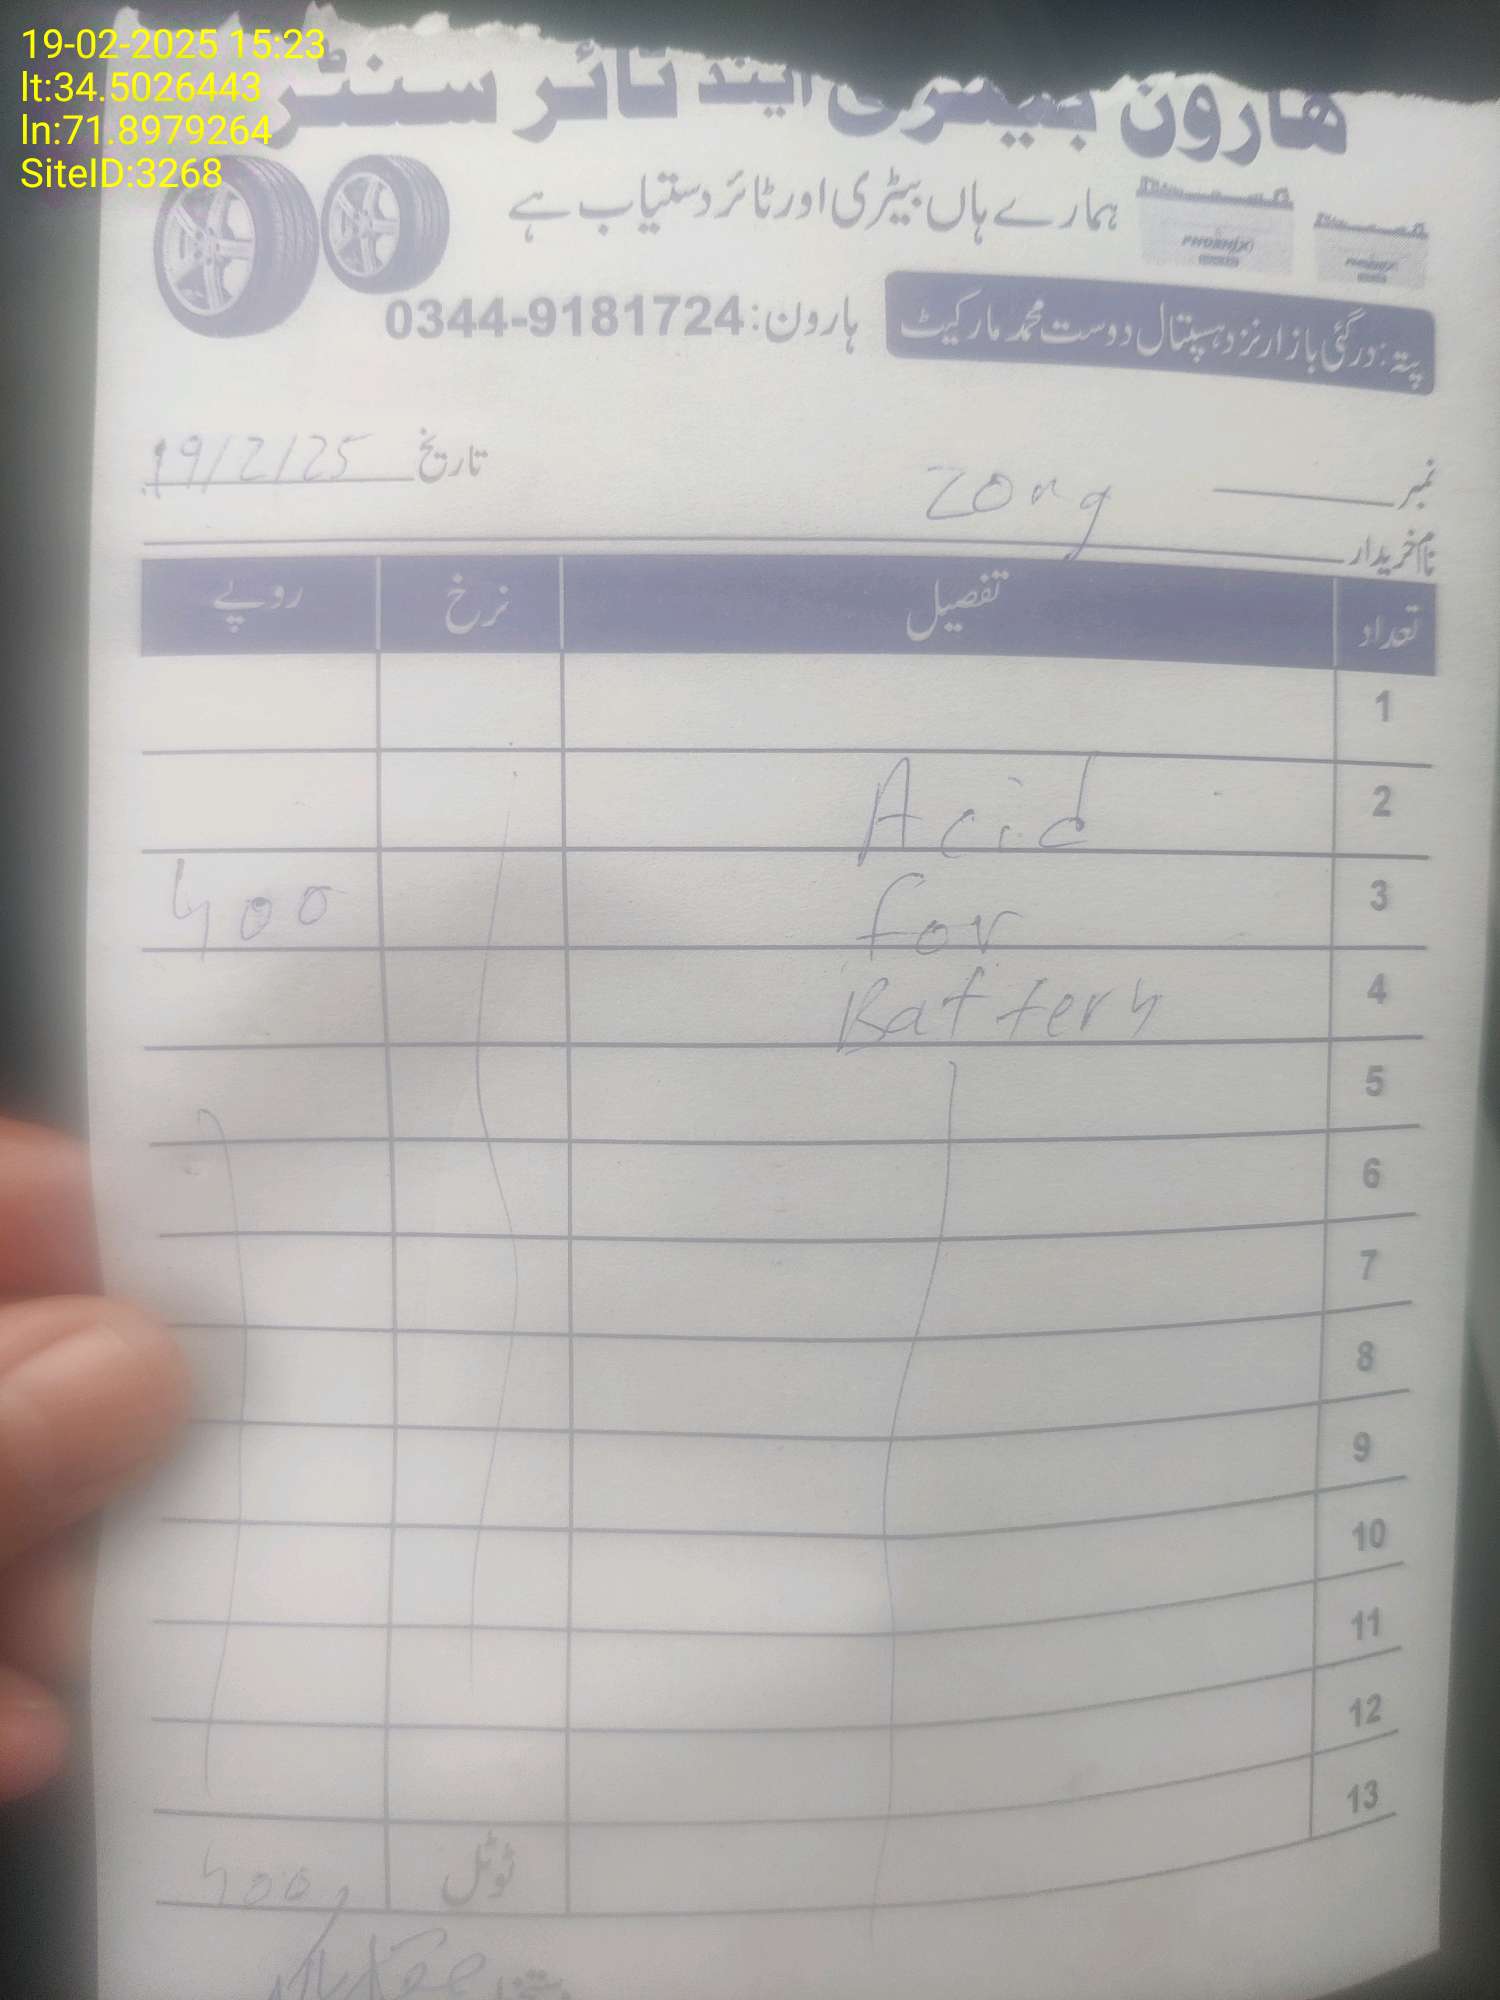 19-02-2025 15:23
lt:34.5026443
ln:71.8979264
SiteID:3268
ھارون بیٹری اینڈ ٹائر سنٹر
ہمارے ہاں بیٹری اور ٹائر دستیاب ہے
PHOENIX
PHOENIX
پتہ: درگئی بازار نزد ہسپتال دوست محمد مارکیٹ
ہارون: 0344-9181724
نمبر
Zong
تاریخ 19/2/25
نام خریدار
تعداد تفصیل نرخ روپے
1
2 Acid
3 for 400
4 Battery
5
6
7
8
9
10
11
12
13
ٹوٹل 400
دستخط